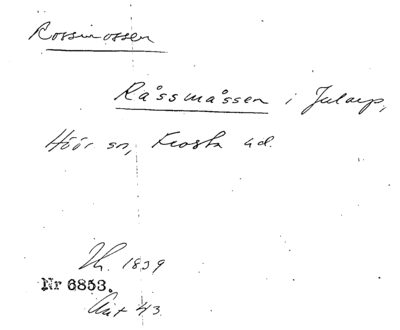 Rossmossen
Råssmåssen i Jularp,
Höör sn, Frosta hd.
Th. 1839
Nr 6853.
Ant 43